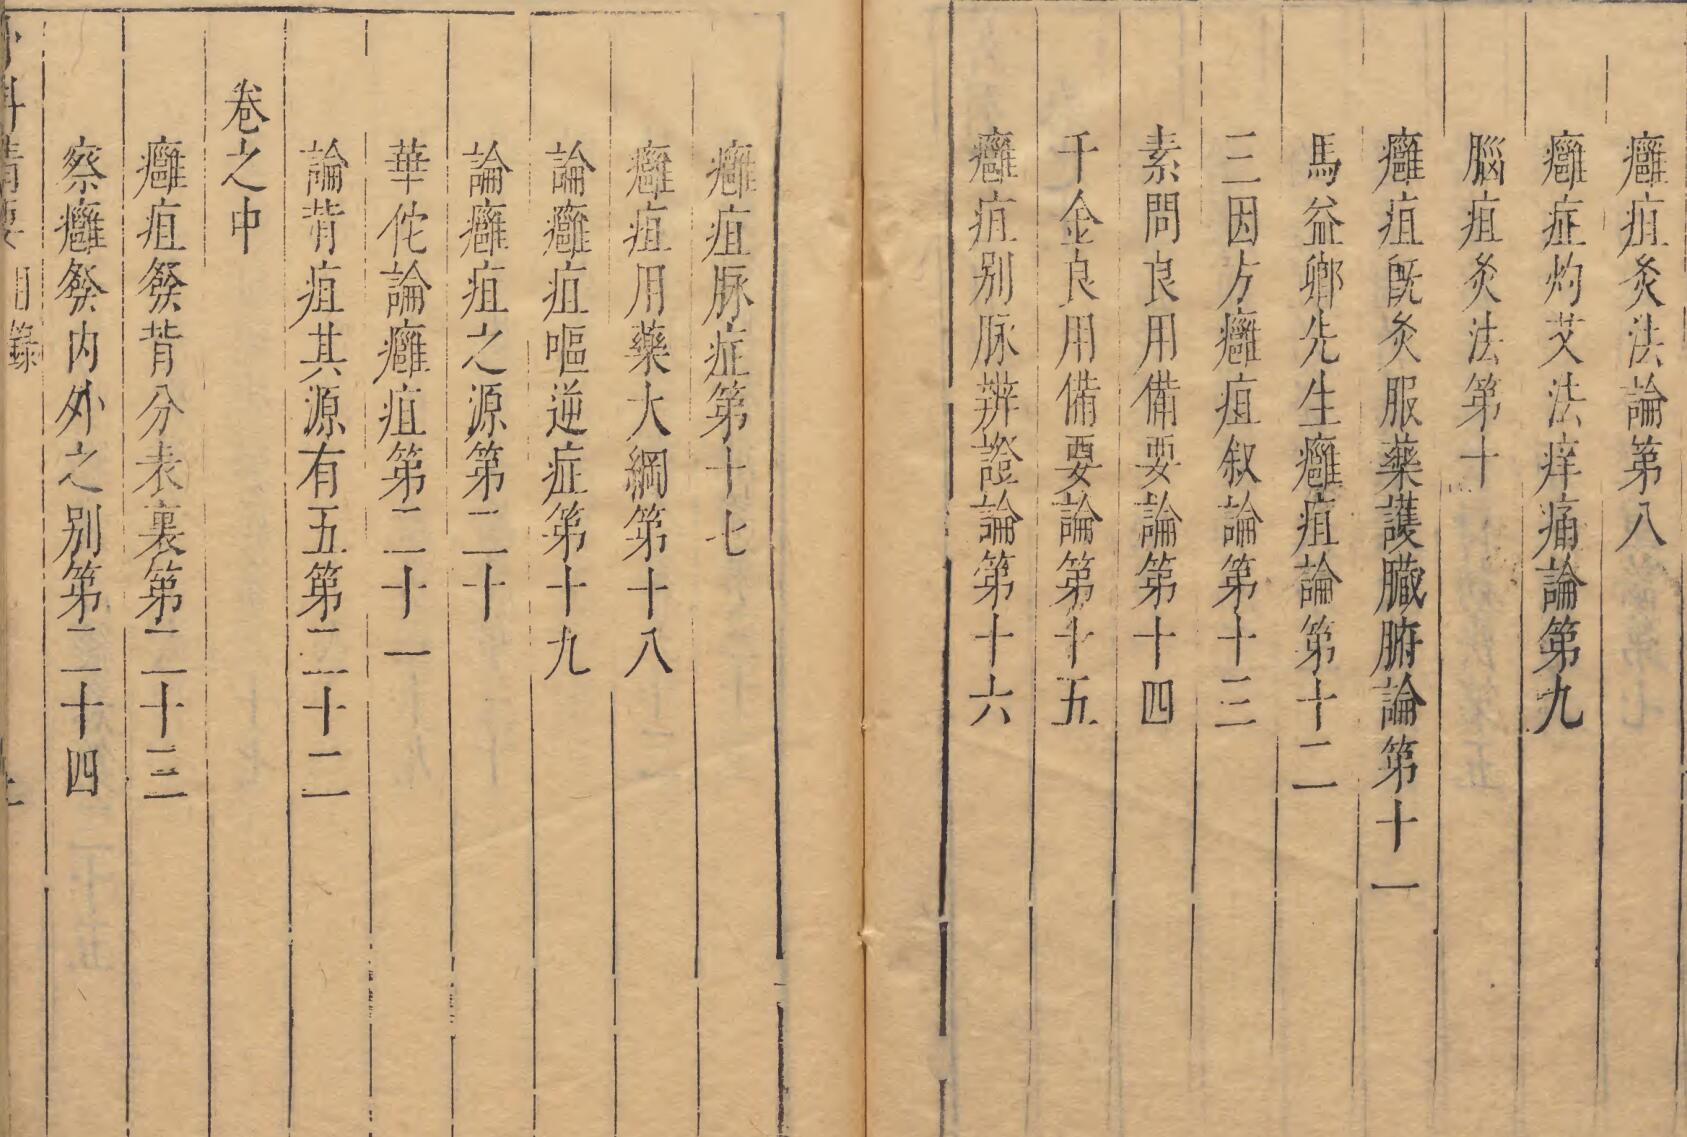 癰疽灸法論第八
癰症灼艾法痒痛論第九
腦疽灸法第十
癰疽既灸服藥護臟腑論第十一
馬益卿先生癰疽論第十二
三因方癰疽叙論第十三
素問良用備要論第十四
千金良用備要論第十五
癰疽别脉辨證論第十六
癰疽脉症第十七
癰疽用藥大綱第十八
論癰疽嘔逆症第十九
論癰疽之源第二十
華佗論癰疽第二十一
論背疽其源有五第二十二
卷之中
癰疽發背分表裏第二十三
察癰發内外之别第二十四
科精要 目錄